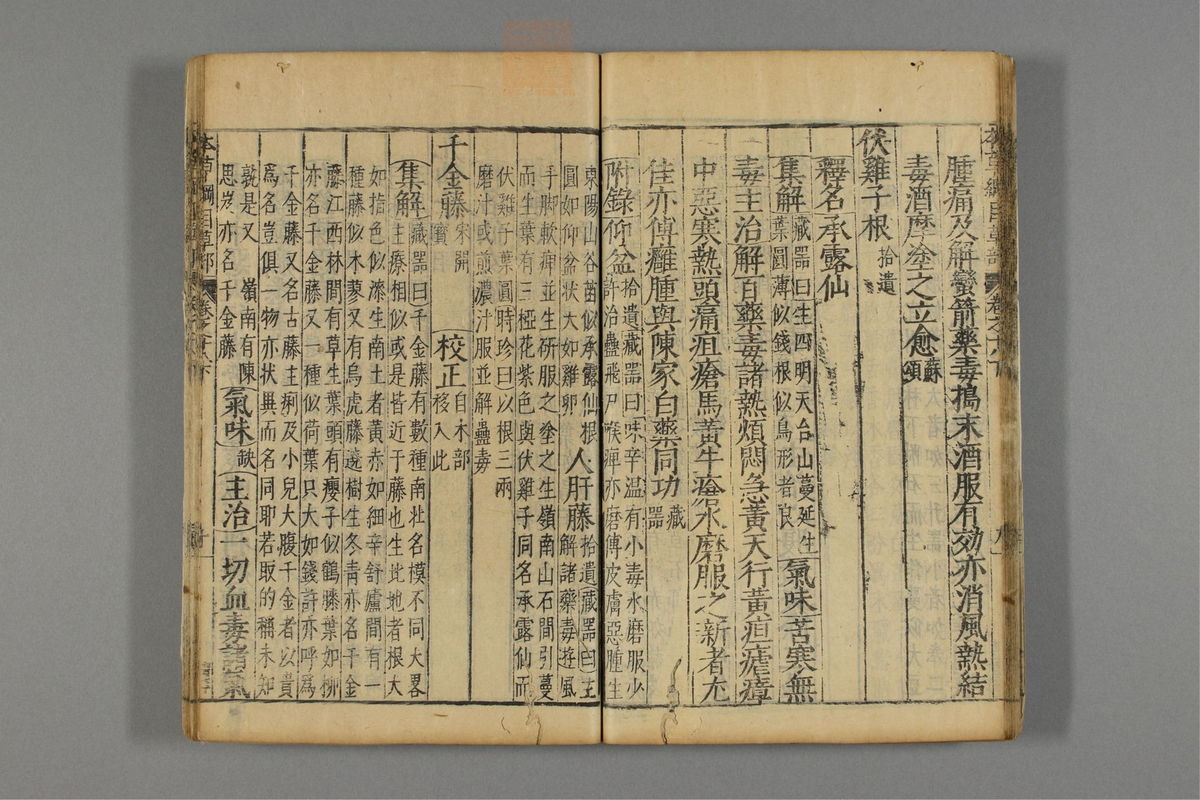 腫痛及解蠻箭藥毒搗末酒服有効亦消風熱結
毒酒摩塗之立愈蘇頌
伏雞子根拾遺
釋名承露仙
集解藏器曰生四明天台山蔓延生
葉圓薄似錢根似鳥形者良
氣味苦寒無
毒主治解百藥毒諸熱煩悶急黃天行黃疸瘧瘴
中惡寒熱頭痛疽瘡馬黃牛疫水磨服之新者尤
佳亦傅癰腫與陳家白藥同功藏器
附錄仰盆拾遺藏器曰味辛温有小毒水磨服少
許治蠱飛尸喉痺亦磨傅皮膚惡腫生
東陽山谷苗似承露仙根
圓如仰盆狀大如雞卵
人肝藤拾遺藏器曰主
解諸藥毒遊風
手脚軟痺並生研服之塗之生嶺南山石間引蔓
而生葉有三椏花紫色與伏雞子同名承露仙而
伏雞子葉圓時珍曰以根三兩
磨汁或煎濃汁服並解蠱毒
千金藤宋開寶
校正自木部移入此
集解藏器曰千金藤有數種南北名模不同大畧
主療相似或是皆近于藤也生北地者根大
如指色似漆生南土者黃赤如細辛舒廬間有一
種藤似木蓼又有烏虎藤遶樹生冬青亦名千金
藤江西林間有草生葉頭有癭子似鶴膝葉如柳
亦名千金藤又一種似荷葉只大如錢許亦呼爲
千金藤又名古藤主痢及小兒大腹千金者以貴
爲名豈俱一物亦狀異而名同耶若取的稱未知
孰是又嶺南有陳
思岌亦名千金藤
氣味缺主治一切血毒諸氣